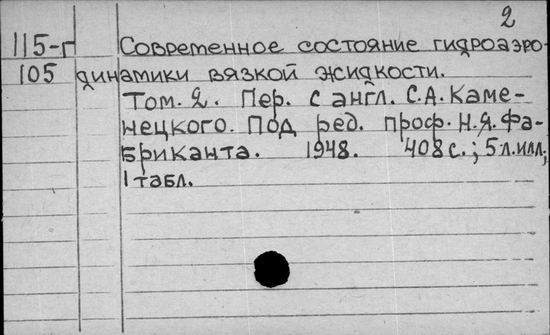 2
115-г Современное состояние гидроаэро-
105 динамики вязкой жидкости.
Том. 2. Пер. с англ. С.А. Каме-
нецкого. Под ред. проф. Н.Я. Фа-
бриканта. 1948. 408 с.; 5 л. илл.,
1 табл.